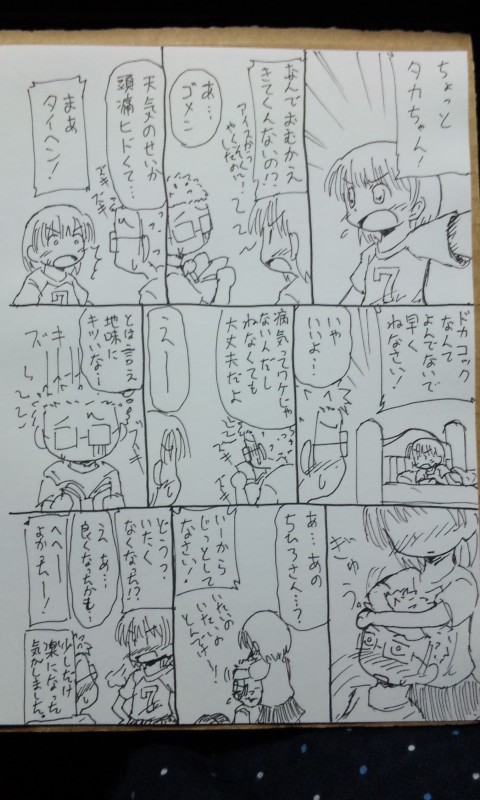 ちょっと
タカちゃん!
なんでおむかえ
きてくんないの!?
アイスかって
やくそく
あ…
ゴメン
天気のせいか
頭痛ヒドくて…
ズキ
ズキ
まあ
タイヘン!
ドカコック
なんて
よんでないで
早く
ねなさい!
いや
いいよ…
病気ってワケじゃ
ないんだし
ねなくても
大丈夫だよ
えー
とは言え
地味に
キツいなー
ズキ
ぎゅう
あ…あの
ちひろさん…?
いーから
じっとして
なさい!
いたいの
いたいの
とんでけー!!
どうっ?
いたく
なくなった!?
え、あ…
良くなったかも…
へへー
よかったー!
少しだけ
楽になった
気がしました。